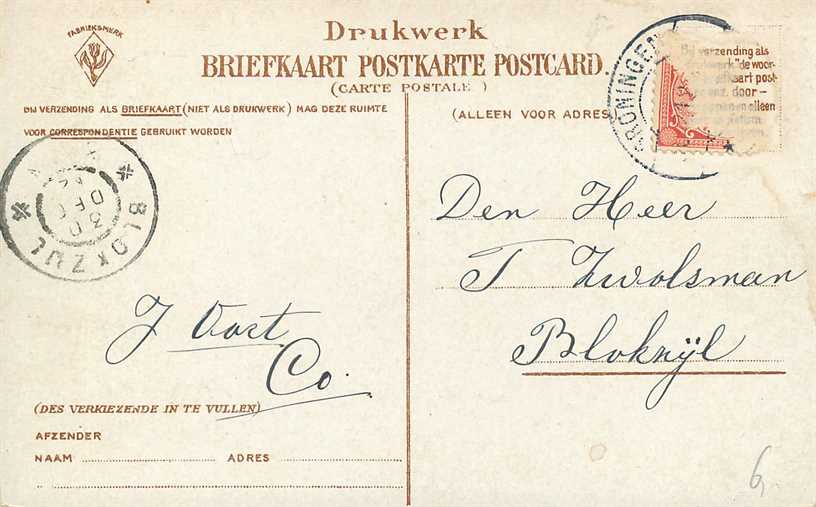 FABRIEKSMERK
Drukwerk
BRIEFKAART POSTKARTE POSTCARD.
(CARTE POSTALE )
BIJ VERZENDING ALS BRIEFKAART (NIET ALS DRUKWERK) MAG DEZE RUIMTE
VOOR CORRESPONDENTIE GEBRUIKT WORDEN
(ALLEEN VOOR ADRES)
GRONINGEN
Bij verzending als
drukwerk "de woor-
kaart post-
door-
en alleen
BLOKZIJL
30
DEC
Den Heer
T Zwolsman
Blokzijl
J Oost
Co.
(DES VERKIEZENDE IN TE VULLEN)
AFZENDER
NAAM ADRES
6,